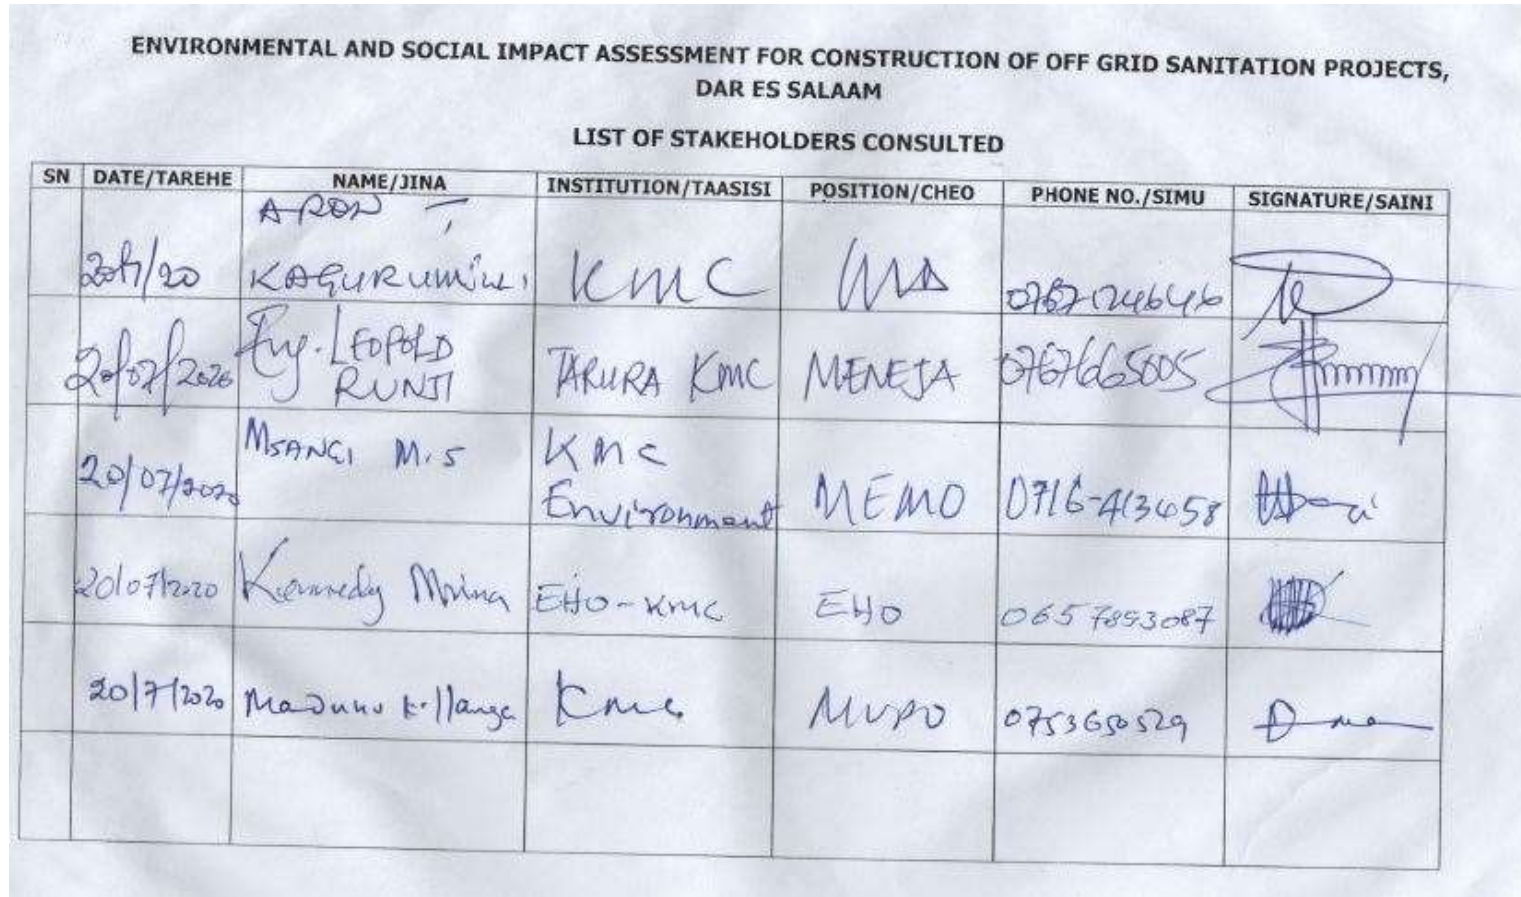 ENVIRONMENTAL AND SOCIAL IMPACT ASSESSMENT FOR CONSTRUCTION OF OFF GRID SANITATION PROJECTS,
DAR ES SALAAM
LIST OF STAKEHOLDERS CONSULTED
SN DATE/TAREHE NAME/JINA INSTITUTION/TAASISI POSITION/CHEO PHONE NO./SIMU SIGNATURE/SAINI
ARON T,
KMC
20/07/2020 Eng. LEOPOLD
RUNJI TARURA KMC MENEJA 0767665005
MSANGI M.S KMC
20/07/2020 Environment MEMO 0716-413458
20/07/2020 Kennedy Mrina EHO-KMC EHO 0657893087
20/7/2020 KMC MUPO 0753650529